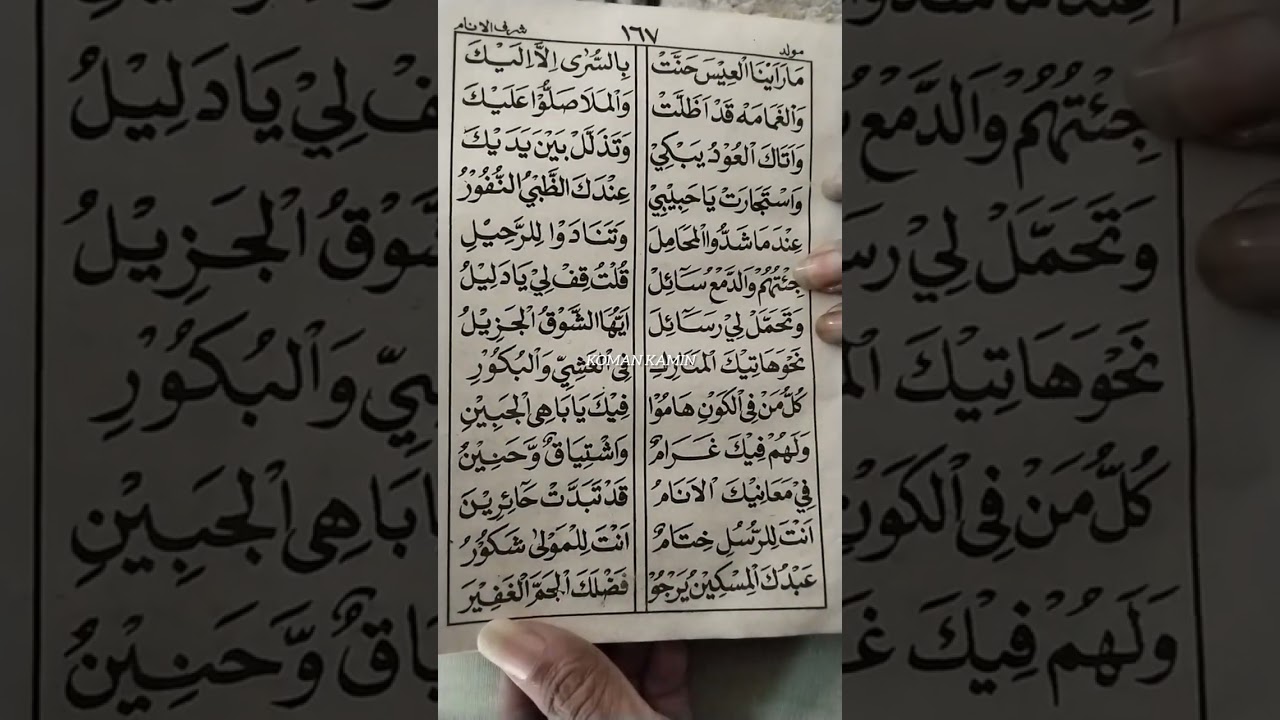 مولد ١٦٧ شرف الانام
مَارَاَيْنَا الْعِيْسَ حَنَّتْ بِالسُّرٰى اِلَّا اِلَيْكَ
وَالْغَمَامَهْ قَدْ اَظَلَّتْ وَالْمَلَا صَلُّوْا عَلَيْكَ
وَاَتَاكَ الْعُوْدُ يَبْكِيْ وَتَذَلَّلْ بَيْنَ يَدَيْكَ
وَاسْتَجَارَتْ يَا حَبِيْبِيْ عِنْدَكَ الظَّبْيُ النُّفُوْرُ
عِنْدَ مَا شَدُّوا الْمَحَامِلَ وَتَنَادَوْا لِلرَّحِيْلِ
جِئْتُهُمْ وَالدَّمْعُ سَآئِلْ قُلْتُ قِفْ لِيْ يَا دَلِيْلُ
وَتَحَمَّلْ لِيْ رَسَآئِلَ اَيُّهَا الشَّوْقُ الْجَزِيْلُ
نَحْوَ هَاتِيْكَ الْمَنَازِلِ فِي الْعَشِيِّ وَالْبُكُوْرِ
كُلُّ مَنْ فِى الْكَوْنِ هَامُوْا فِيْكَ يَا بَاهِى الْجَبِيْنِ
وَلَهُمْ فِيْكَ غَرَامٌ وَاشْتِيَاقٌ وَّحَنِيْنٌ
فِيْ مَعَانِيْكَ الْاَنَامُ قَدْ تَبَدَّتْ حَآئِرِيْنَ
اَنْتَ لِلرُّسُلِ خِتَامٌ اَنْتَ لِلْمَوْلٰى شَكُوْرُ
عَبْدُكَ الْمِسْكِيْنُ يَرْجُوْ فَضْلَكَ الْجَمَّ الْغَفِيْرَ
KOMAN KAMIN